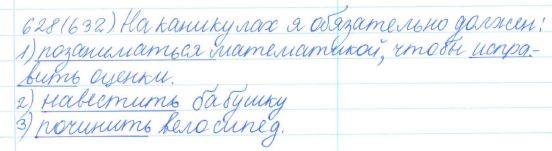 628(632) На каникулах я обязательно должен:
1) позаниматься математикой, чтобы испра-
вить оценки.
2) навестить бабушку
3) починить велосипед.